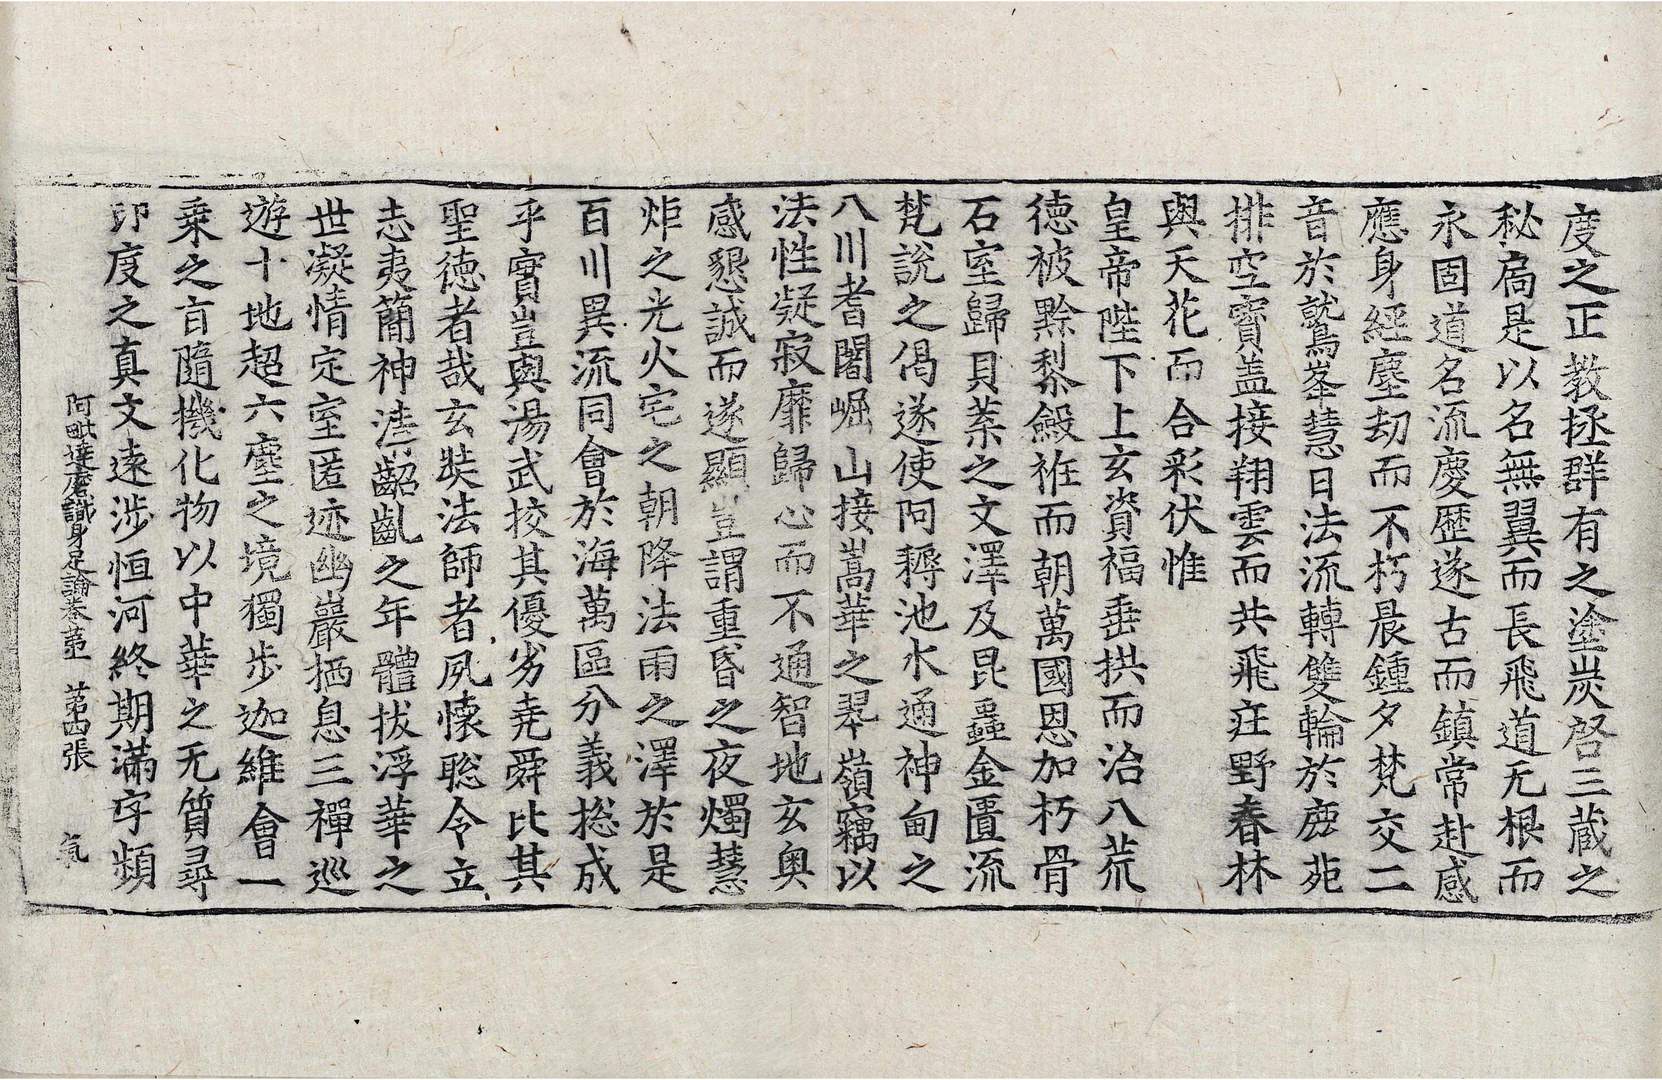 度之正教拯群有之塗炭啓三蔵之
秘扃是以名無翼而長飛道无根而
永固道名流慶歷遂古而鎮常赴感
應身經塵劫而不朽晨鍾夕梵交二
音於鷲峯慧日法流轉雙輪於鹿菀
排空寶盖接翔雲而共飛莊野春林
與天花而合彩伏惟
皇帝陛下上玄資福垂拱而治八荒
德被黔黎斂衽而朝萬國恩加朽骨
石室歸貝葉之文澤及昆蟲金匱流
梵說之偈遂使阿耨池水通神甸之
八川耆闍崛山接嵩華之翠嶺竊以
法性凝寂靡歸心而不通智地玄奥
感懇誠而遂顯豈謂重昏之夜燭慧
炬之光火宅之朝降法雨之澤於是
百川異流同會於海萬區分義捴成
乎實豈與湯武挍其優劣堯舜比其
聖德者哉玄奘法師者夙懷聡令立
志夷簡神清齠齓之年體拔浮華之
世凝情定室匿迹幽巖栖息三禪巡
遊十地超六塵之境獨步迦維會一
乘之旨隨機化物以中華之无質尋
印度之真文遠涉恒河終期滿字頻
阿毗達磨識身足論卷苐一 苐四張 氣